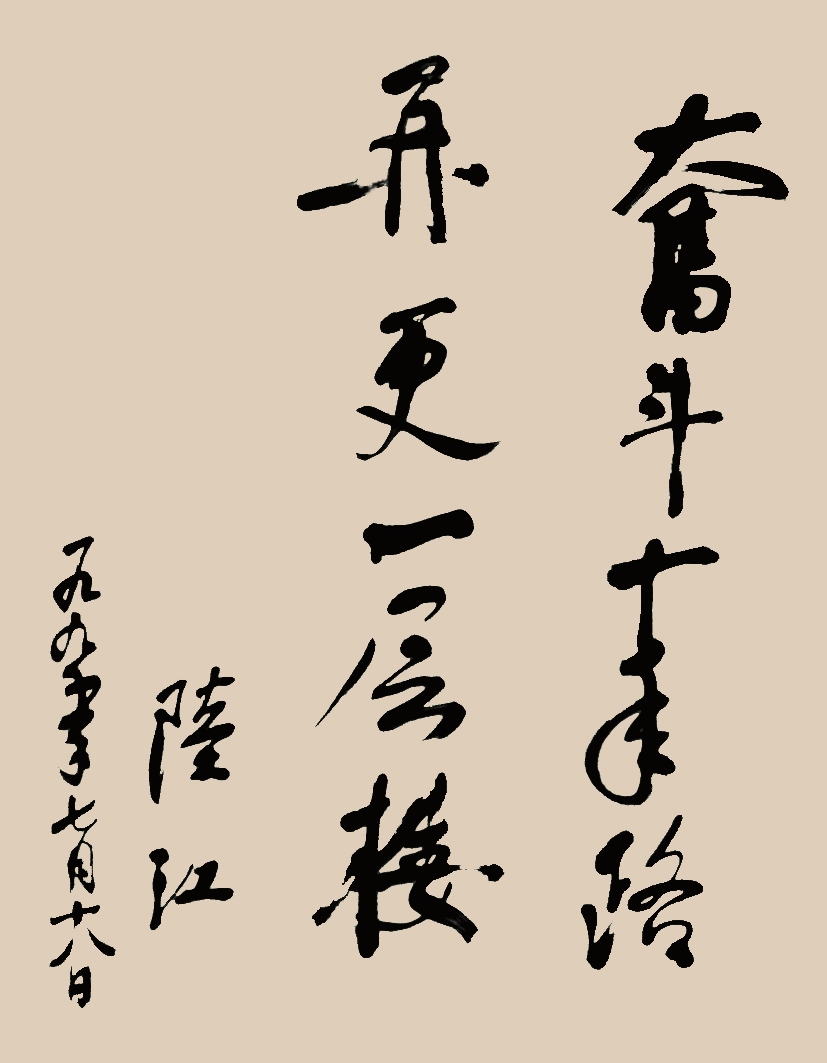 奮斗十年路
再更一层楼
陸江
一九九年七月十八日